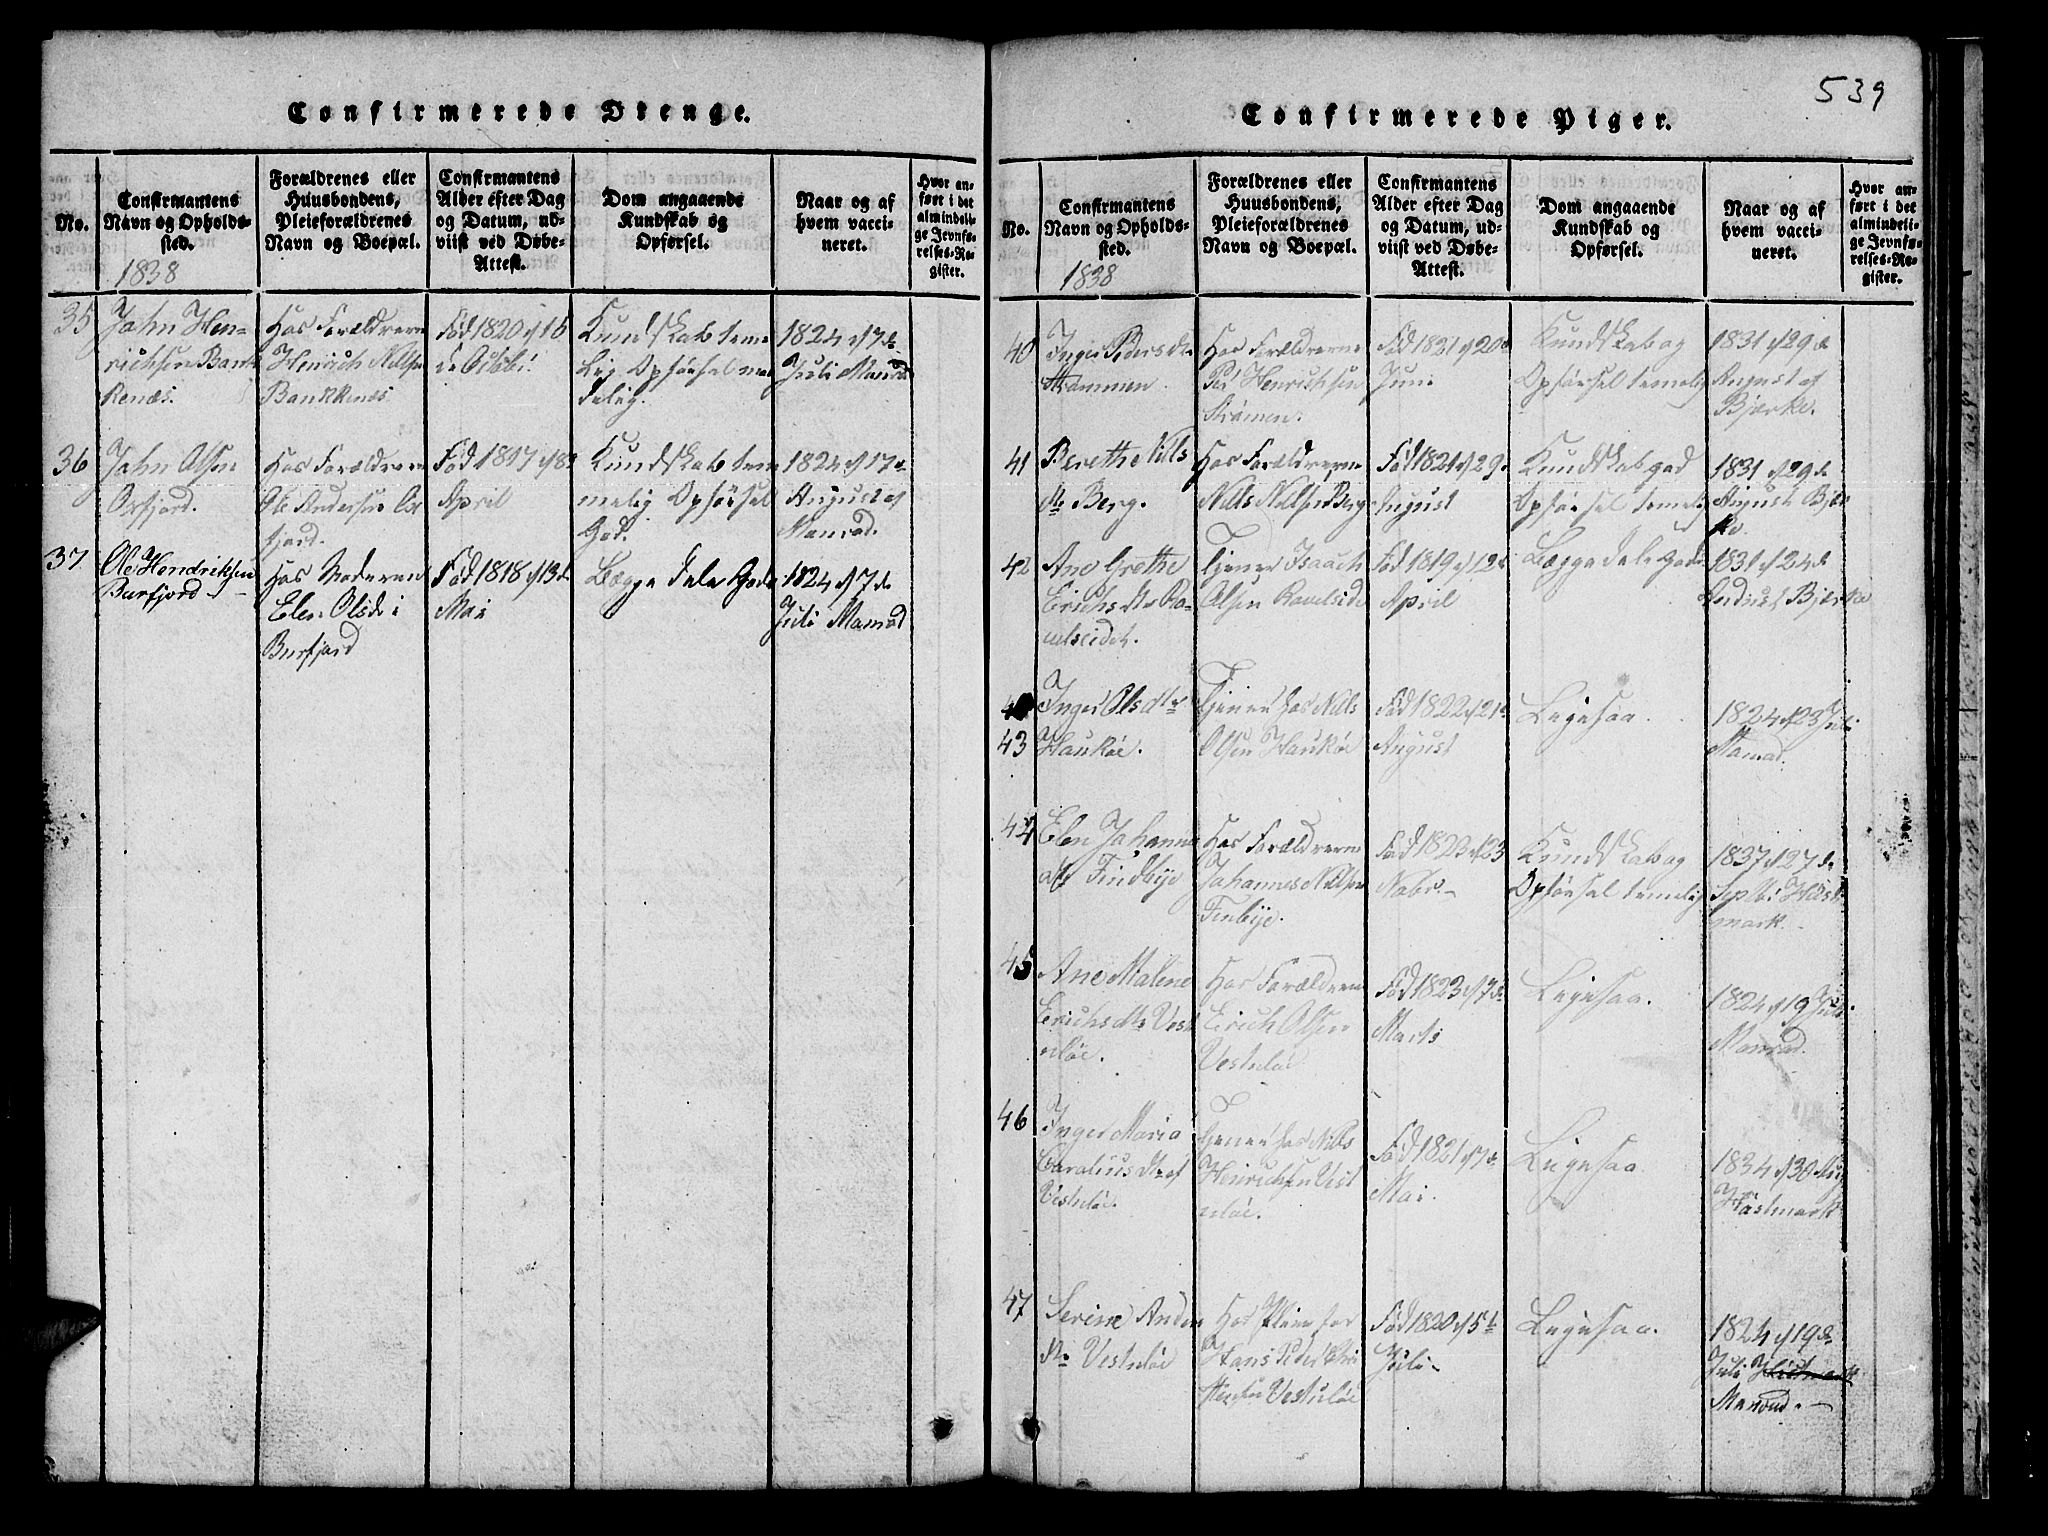 539
Confirmerede Drenge.
No.
Confirmantens
Navn og Opholds-
sted.
1838
Forældrenes eller
Huusbondens,
Pleieforældrenes
Navn og Boepæl.
Confirmantens
Alder efter Dag
og Datum, ud-
viist ved Døbe-
Attest.
Dom angaaende
Kundskab og
Opførsel.
Naar og af
hvem vacci-
neret.
Hvor an-
ført i det
almindeli-
ge Jevnfø-
relses-Re-
gister.
35
John Hen-
richsen Bank
Renæs.
Hos Forældrerne
Henrich Nilsen
Bankkenæs
Fød 1820 d 16
de Octobr.
Kundskab teme
Lig Opførsel maa
delig.
1824 d 7de
Juli Manrad
36
John Olsen
Oxfjord.
Hos Forældrerne
Ole Andersen Ox
fjord.
Fød 1817 d 8de
April
Kundskab tem
melig Opførsel
God.
1824 d 17de
August af
Manrad.
37
Ole Hendriksen
Burfjord
Hos Moderen
Elen Olsdr i
Burfjord
Fød 1818 d 13de
Mai
Begge dele Gode
1824 d 7de
Juli Manrad
Confirmerede Piger.
No.
Confirmantens
Navn og Opholds-
sted.
1838
Forældrenes eller
Huusbondens,
Pleieforældrenes
Navn og Boepæl.
Confirmantens
Alder efter Dag
og Datum, ud-
viist ved Døbe-
Attest.
Dom angaaende
Kundskab og
Opførsel.
Naar og af
hvem vacci-
neret.
Hvor an-
ført i det
almindeli-
ge Jevnfø-
relses-Re-
gister.
40
Inger Pedersdtr
Strømmen.
Hos Forældrerne
Ped Henrichsen
Strømen.
Fød 1821 d 20de
Juni
Kundskab og
Opførsel temelig
1831 d 29de
August af
Bjerke.
41
Berethe Nills
dtr Berg.
Hos Forældrerne
Nills Nillsen Berg
Fød 1821 d 29de
August
Kundskab god
Opførsel temelig
1831 d 29de
August Bjer
ke.
42
Ane Grethe
Erichsdtr Ra-
velseidet.
Tjener Isaach
Olsen Ravelseide
Fød 1819 d 12te
April
Begge dele Gode
1831 d 24de
August Bjerke
43
Inger Olsdtr
Haukøe.
Tjener hos Nills
Olsen Haukøe
Fød 1822 d 21de
August
Ligesaa.
1824 d 23 Juli
Manrad.
44
Elen Johanne
dtr Findbye
Hos Forældrerne
Johannes Nillsen
Finbye.
Fød 1823 d 23
Nobr.
Kundskab og
Opførsel temelig
1837 d 27de
Septbr Hast
mark.
45
Ane Malene
Erichsdtr Vest
nløe.
Hos Forældrerne
Erich Olsen
Vestnløe
Fød 1823 d 7de
Marts
Ligesaa.
1824 d 19 Juli
Manrad.
46
Inger Maria
Caroliusdtr af
Vestnløe.
Tjener hos Nills
Henrichsen Vest
nløe.
Fød 1821 d 7de
Mai.
Ligesaa
1834 d 30 Aug
Hastmark
47
Serine Anders
dtr Vestnløe
Hos Pleiefor
Hans Peder
Vestnløe
Fød 1820 d 5te
Juli
Ligesaa.
1824 d 19de
Juli Hastmark
Manrad.